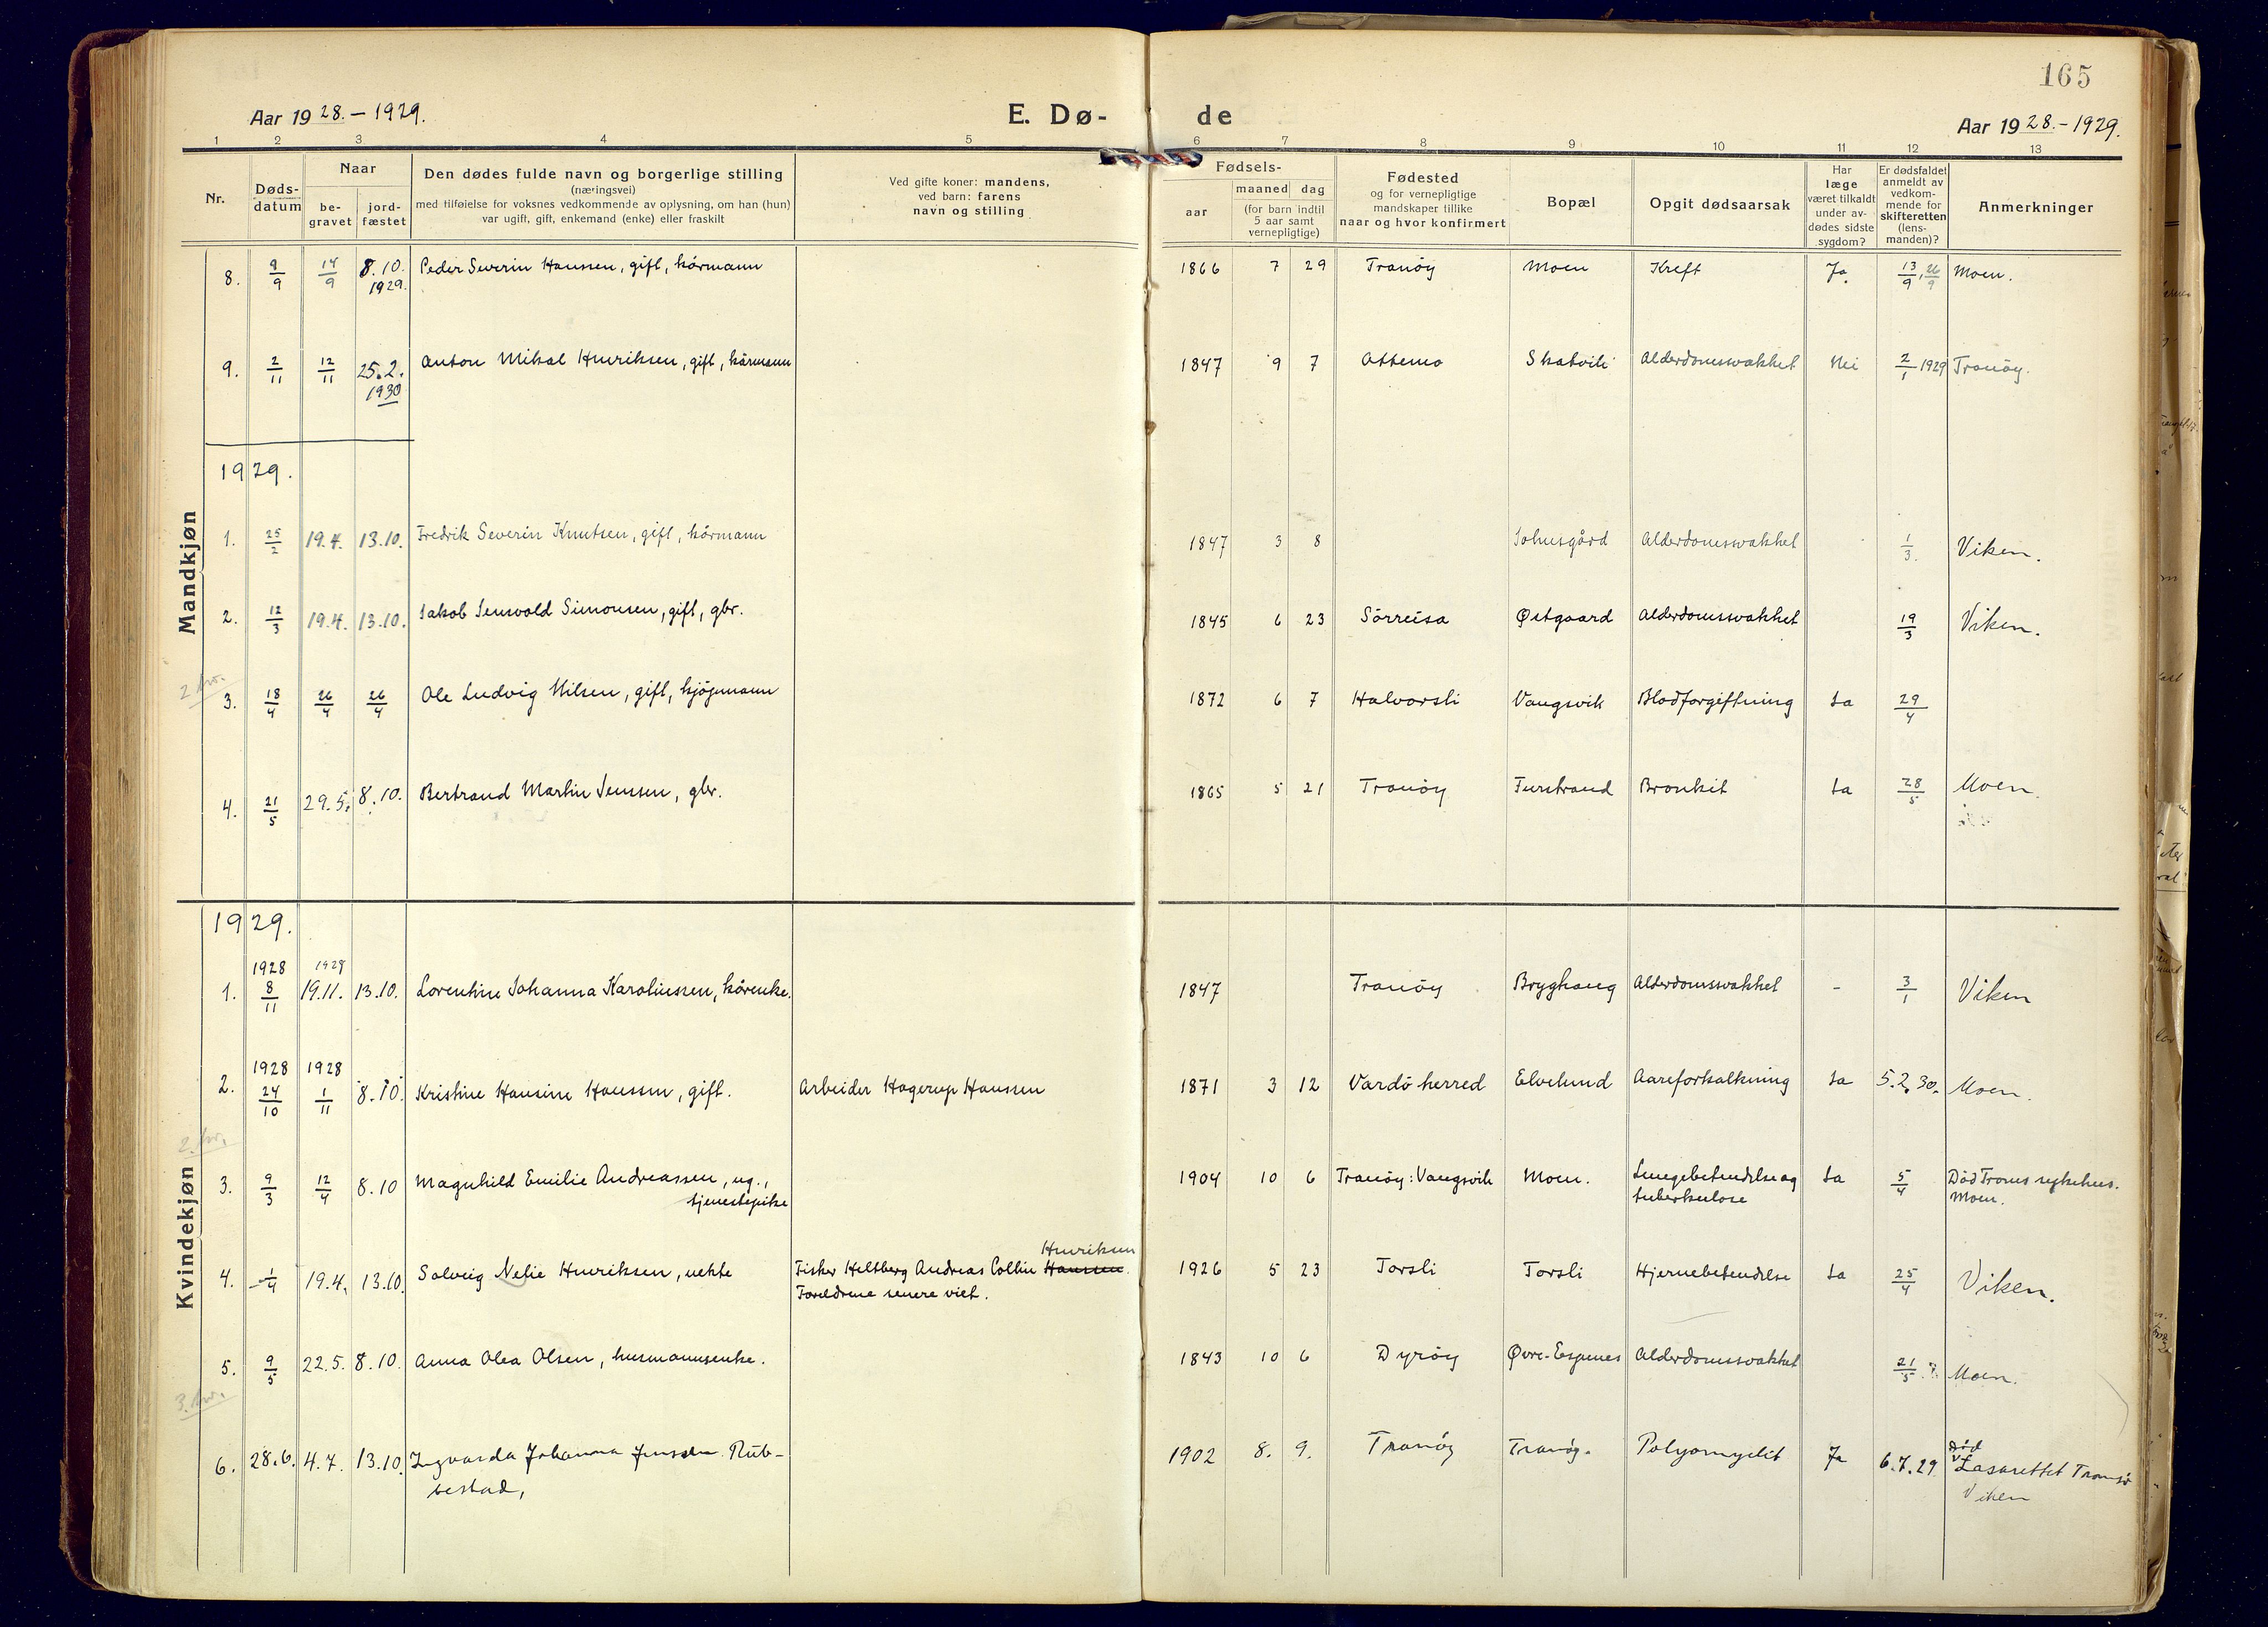 165
Aar 1928. – 1929.
E. Dø-
de
Aar 1928. – 1929.
1 2 3 4 5 6 7 8 9 10 11 12 13
Nr.
Døds-
datum
Naar
be-
gravet
jord-
fæstet
Den dødes fulde navn og borgerlige stilling
(næringsvei)
med tilføielse for voksnes vedkommende av oplysning, om han (hun)
var ugift, gift, enkemand (enke) eller fraskilt
Ved gifte koner: mandens,
ved barn: farens
navn og stilling
Fødsels-
aar
maaned dag
(for barn indtil
5 aar samt
vernepligtige)
Fødested
og for vernepligtige
mandskaper tillike
naar og hvor konfirmert
Bopæl
Opgit dødsaarsak
Har
læge
været tilkaldt
under av-
dødes sidste
sygdom?
Er dødsfaldet
anmeldt av
vedkom-
mende for
skifteretten
(lens-
manden)?
Anmerkninger
Mandkjøn
8. 9/9 14/9 8.10. 1929. Peder Severin Hanssen, gift, kårmann 1866 7 29 Tranöy Moen Kreft Ja. 13/9, 26/9 Moen.
9. 2/11 12/11 25.2. 1930 Anton Mikal Henriksen, gift, kårmann 1847 9 7 Skatvik Alderdomssvakhet Nei 2/1 1929 Tranöy.
1929.
1. 25/2 19.4. 13.10. Fredrik Severin Knutsen, gift, kårmann 1847 3 8 Johnsgård Alderdomssvakhet 1/3. Viken.
2. 12/3 19.4. 13.10. Jakob Jensvold Simonsen, gift, gbr. 1845 6 23 Sörreisa Østgaard Alderdomssvakhet 19/3 Viken.
2 kv.
3. 18/4 26/4 26/4 Ole Ludvig Nilsen, gift, kjöpmann 1872 6 7 Halvorsli Vangsvik Blodforgiftning Ja 29/4
4. 21/5 29.5. 8.10. Bertrand Martin Jensen, gbr. 1865 5 21 Tranöy Furstrand Bronkit Ja 28/5 Moen.
Kvindekjøn
1929.
1. 1928 8/11 1928 19.11. 13.10. Lorentine Johanna Karoliussen, kårenke. 1847 Tranöy Bryghaug Alderdomssvakhet - 3/1 Viken
2. 1928 24/10 1928 1/11 8.10. Kristine Hansine Hanssen, gift. Arbeider Hagerup Hanssen 1871 3 12 Vardö herred Elvelund Aareforkalkning Ja 5.2.30. Moen.
2. kv.
3. 9/3 12/4 8.10 Magnhild Emilie Andreassen, ug.,
tjenestepike 1904 10 6 Tranöy: Vangsvik Moen. Lungebetendelse og
tuberkulose Ja 5/4 Död Troms sykehus.
Moen.
4. 1/4 19.4. 13.10. Solveig Nelie Henriksen, uekte Fisker Heltberg Andreas Collin Hanssen Henriksen
Foreldrene senere viet. 1926 5 23 Torsli Torsli Hjernebetendelse Ja 25/4 Viken.
5. 9/5 22.5. 8.10. Anna Olea Olsen, husmannsenke. 1843 10 6 Dyröy Øvre-Espenes Alderdomssvakhet 21/5. Moen.
3. kv.
6. 28.6. 4.7. 13.10. Ingvarda Johanna Jenssen Rub-
bestad, 1902 8. 9. Tranöy Tranöy. Polyomyelit Ja 6.7.29 död
Lasarettet Tromsö
Viken